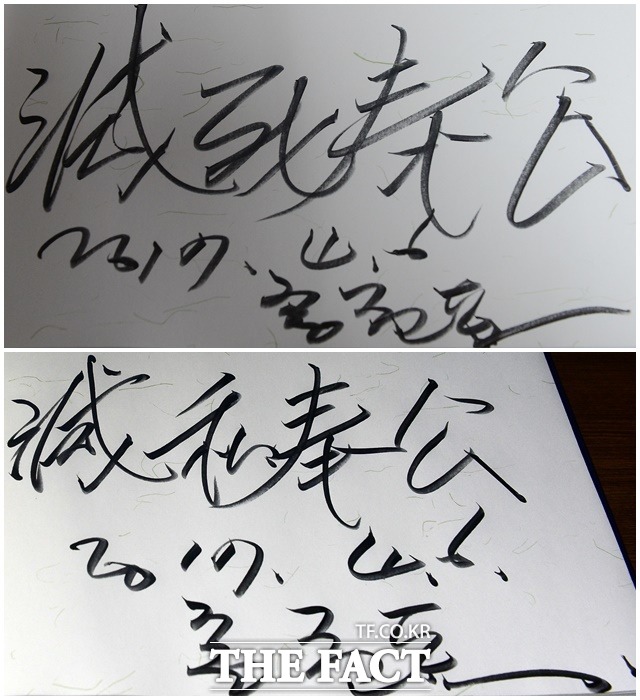 滅死奉公
2017. 4. 6
홍준표
滅私奉公
2017. 4. 6.
홍준표
TF.CO.KR
THE FACT